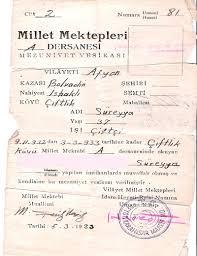 Cüz 2 Numara Umumî Hususî 81
Millet Mektepleri
A DERSANESİ
MEZUNİYET VESİKASI
VİLÂYETİ Afyon
KAZASI Bolvadin ŞEHİRİ
Nahiyesi İshaklı SEMTİ
KÖYÜ Çiftlik Mahallesi
ADI Süreyya
Yaşı 37
İŞİ Çiftçi
9.11.932 den 3-3-933 tarihine kadar Çiftlik
Köyü Millet Mektebi A dersanesinde okuyan
Süreyya
yapılan imtihanlarda muvaffak olmuş ve
kendisine bu mezuniyet vesikası verilmiştir.
Millet Mektebi Vilâyet Millet Mektepleri
Muallimi İdare Heyeti Reisi Namına
M.
Tarihi 5.3.1933